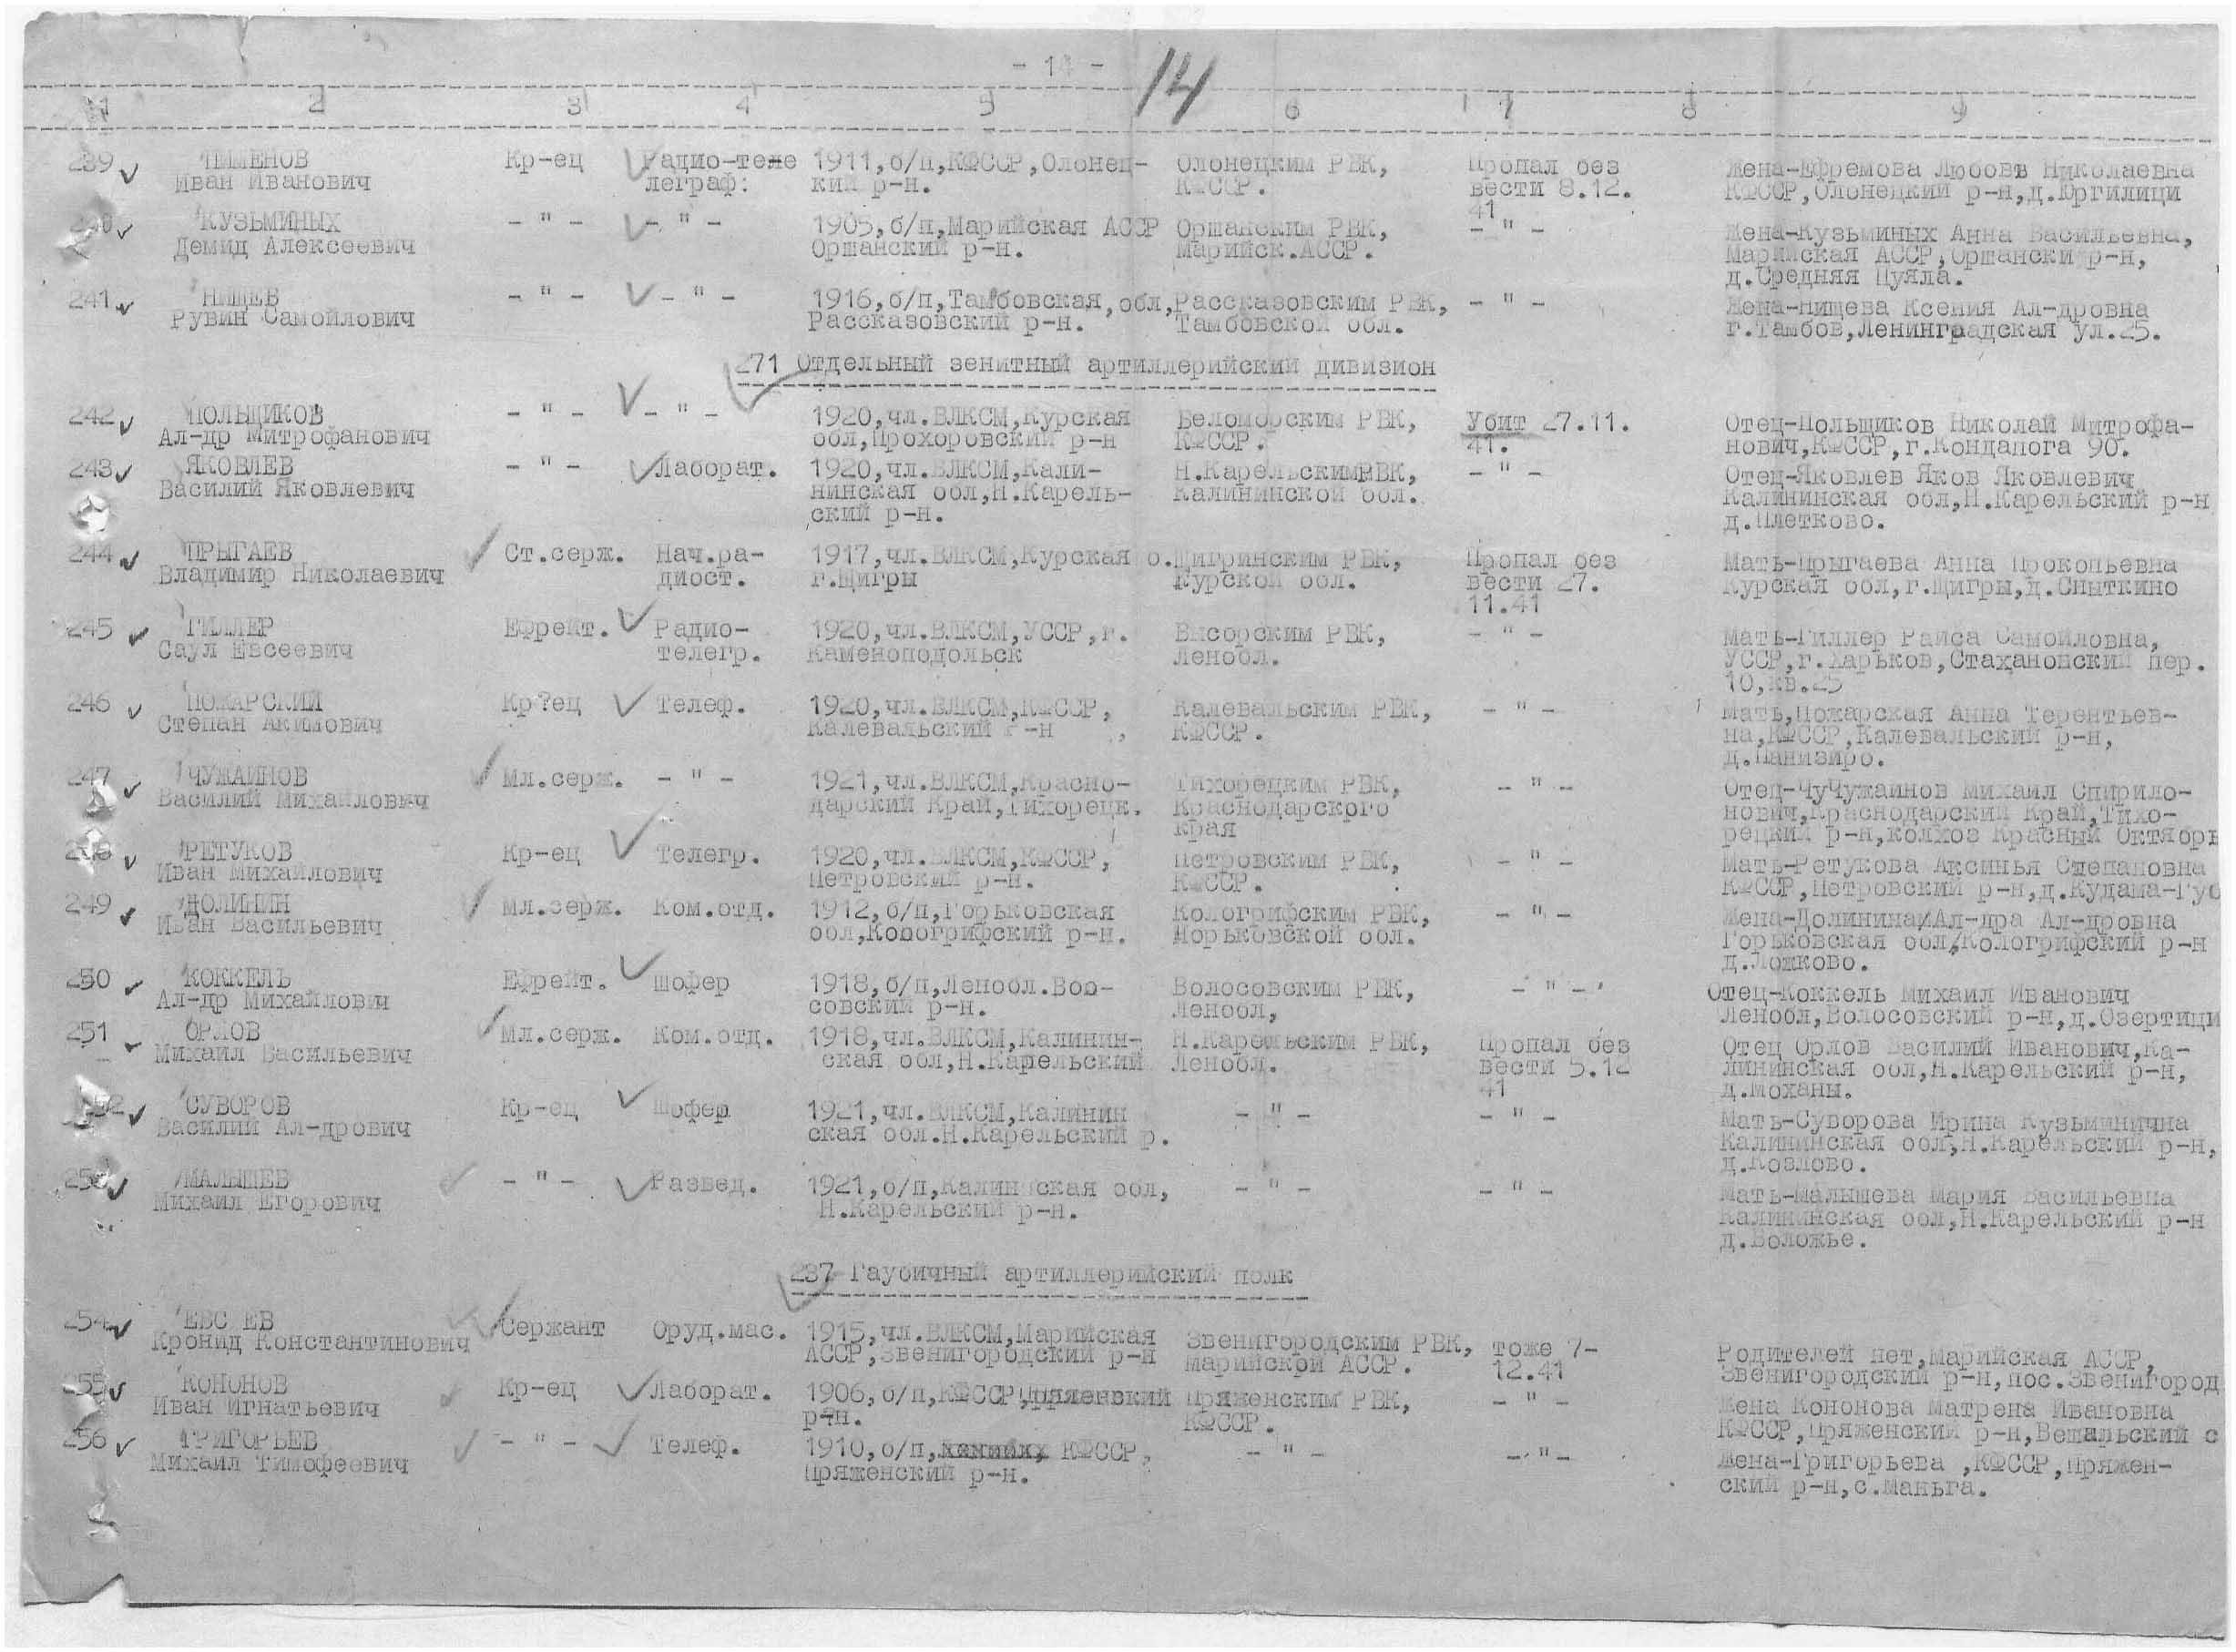 - 14 - 14
1 2 3 4 5 6 7 8 9
239 Иван Иванович Кр-ец Радио-теле леграф: 1911,б/п,КФССР,Олонец- кий р-н. Олонецким РВК, КФССР. Пропал без вести 8.12. 41 Жена-Ефремова Любовь Николаевна КФССР,Олонецкий р-н,д.Юргилици
240 КУЗЬМИНЫХ Демид Алексеевич - " - - " - 1905,б/п,Марийская АССР Оршанский р-н. Оршанским РВК, Марийск.АССР. - " - Жена-Кузьминых Анна Васильевна, Марийская АССР,Оршански р-н, д.Средняя Пуяла.
241 НИЩЕВ Рувин Самойлович - " - - " - 1916,б/п,Тамбовская,обл, Рассказовский р-н. Рассказовским РВК, Тамбовской обл. - " - Жена-Нищева Ксения Ал-дровна г.Тамбов,Ленинградская ул.25.
271 Отдельный зенитный артиллерийский дивизион
242 ПОЛЬЩИКОВ Ал-др Митрофанович - " - - " - 1920,чл.ВЛКСМ,Курская обл,Прохоровский р-н Беломорским РВК, КФССР. Убит 27.11. 41. Отец-Польщиков Николай Митрофа- нович,КФССР,г.Кондапога 90.
243 ЯКОВЛЕВ Василий Яковлевич - " - Лаборат. 1920,чл.ВЛКСМ,Кали- нинская обл,Н.Карель- ский р-н. Н.Карельским РВК, Калининской обл. - " - Отец-Яковлев Яков Яковлевич Калининская обл,Н.Карельский р-н д.Плетково.
244 ПРЫГАЕВ Владимир Николаевич Ст.серж. Нач.ра- диост. 1917,чл.ВЛКСМ,Курская о. г.Щигры Щигринским РВК, Курской обл. Пропал без вести 27. 11.41 Мать-Прыгаева Анна Прокопьевна Курская обл,г.Щигры,д.Сныткино
245 ГИЛЛЕР Саул Евсеевич Ефрейт. Радио- телегр. 1920,чл.ВЛКСМ,УССР,г. Каменоподольск Высорским РВК, Ленобл. - " - Мать-Гиллер Раиса Самойловна, УССР,г.Харьков,Стахановский пер. 10,кв.25
246 ПОЖАРСКИЙ Степан Акимович Кр?ец Телеф. 1920,чл.ВЛКСМ,КФССР, Калевальский р-н Калевальским РВК, КФССР. - " - Мать,Пожарская Анна Терентьев- на,КФССР,Калевальский р-н, д.Панизиро.
247 ЧУЖАИНОВ Василий Михайлович Мл.серж. - " - 1921,чл.ВЛКСМ,Красно- дарский Край,Тихорецк. Тихорецким РВК, Краснодарского края - " - Отец-ЧуЧужаинов Михаил Спирило- нович,Краснодарский Край,Тихо- рецкий р-н,колхоз Красный Октябрь
РЕТУКОВ Иван Михайлович Кр-ец Телегр. 1920,чл.ВЛКСМ,КФССР, Петровский р-н. Петровским РВК, КФССР. - " - Мать-Ретукова Аксинья Степановна КФССР,Петровский р-н,д.Кудама-Гус
249 ДОЛИНИН Иван Васильевич Мл.серж. Ком.отд. 1912,б/п,Горьковская обл,Кологрифский р-н. Кологрифским РВК, Морьковской обл. - " - Жена-Долинина Ал-дра Ал-дровна Горьковская обл,Кологрифский р-н д.Ложково.
250 КОККЕЛЬ Ал-др Михайлович Ефрейт. Шофер 1918,б/п,Ленобл.Воо- совский р-н. Волосовским РВК, Ленобл, - " - Отец-Коккель Михаил Иванович Ленобл,Волосовский р-н,д.Озертици
251 ОРЛОВ Михаил Васильевич Мл.серж. Ком.отд. 1918,чл.ВЛКСМ,Калинин- ская обл,Н.Карельский Н.Карельским РВК, Ленобл. Пропал без вести 5.12 41 Отец Орлов Василий Иванович,Ка- лининская обл,Н.Карельский р-н, д.Моханы.
СУВОРОВ Василий Ал-дрович Кр-ец Шофер 1921,чл.ВЛКСМ,Калинин ская обл.Н.Карельский р. - " - - " - Мать-Суворова Ирина Кузьминична Калининская обл,Н.Карельский р-н, д.Козлово.
253 МАЛЫШЕВ Михаил Егорович - " - Развед. 1921,б/п,Калин ская обл, Н.Карельский р-н. - " - - " - Мать-Малышева Мария Васильевна Калининская обл,Н.Карельский р-н д.Воложье.
237 Гаубичный артиллерийский полк
254 ЕВС ЕВ Кронид Константинович Сержант Оруд.мас. 1915,чл.ВЛКСМ,Марийская АССР,Звенигородский р-н Звенигородским РВК, Марийской АССР. тоже 7- 12.41 Родителей нет,Марийская АССР, Звенигородский р-н,пос.Звенигород
255 КОНОНОВ Иван Игнатьевич Кр-ец Лаборат. 1906,б/п,КФССР, р-н. Пряженским РВК, КФССР. - " - Жена Кононова Матрена Ивановна КФССР,Пряженский р-н,Вешальский с
256 ГРИГОРЬЕВ Михаил Тимофеевич - " - Телеф. 1910,б/п, КФССР, Пряженский р-н. - " - - " - Жена-Григорьева ,КФССР,Пряжен- ский р-н,с.Маньга.